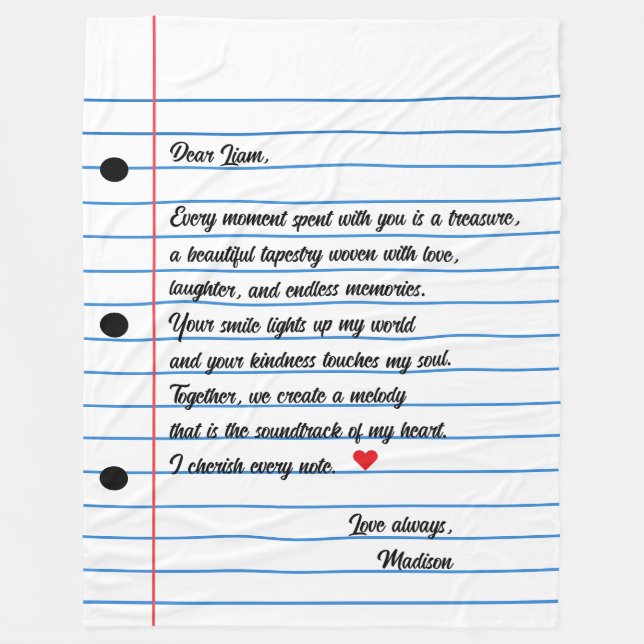 Dear Liam,
Every moment spent with you is a treasure,
a beautiful tapestry woven with love,
laughter, and endless memories.
Your smile lights up my world
and your kindness touches my soul.
Together, we create a melody
that is the soundtrack of my heart.
I cherish every note.
Love always,
Madison